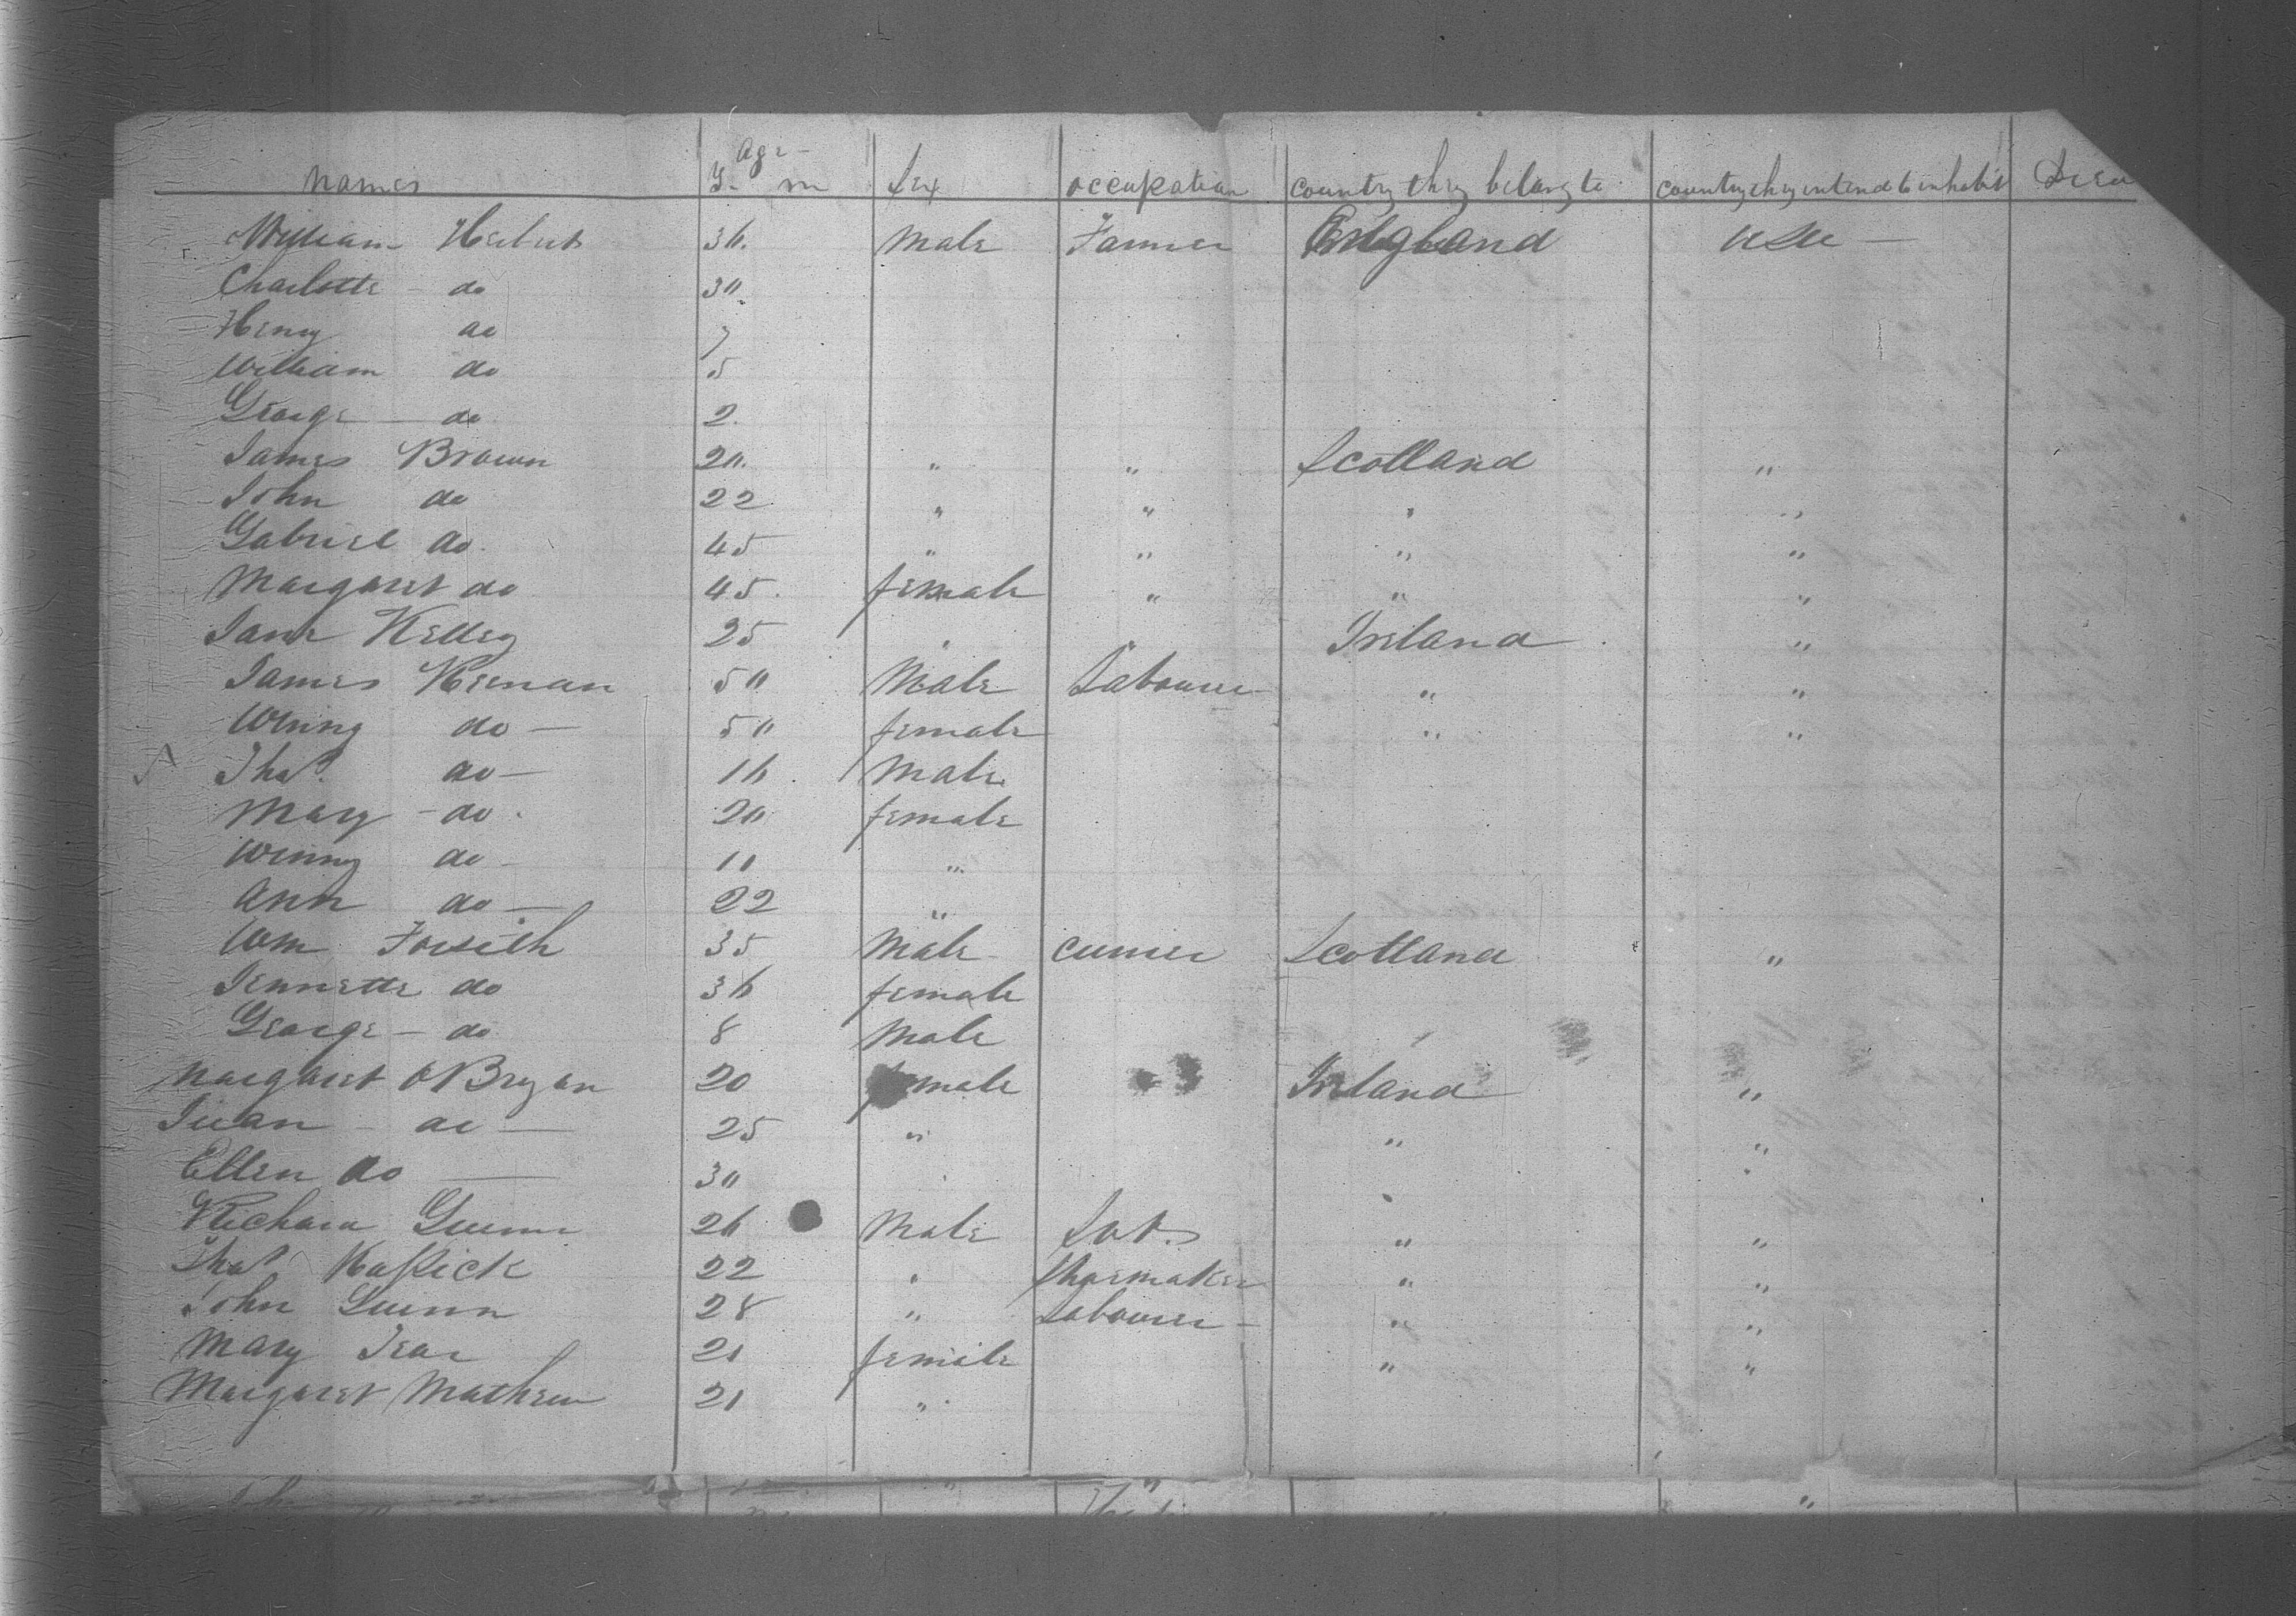 Age
names Y. m Sex occupation country they belong to country they intend to inhabit Died
William Herbert 36. Male Farmer England USA —
Charlotte - do 30
Henry do 7
William do 5
George — do 2.
James Brown 20. " " Scotland "
John do 22 " " " "
Gabriel do. 45 " " " "
Margaret do 45. female " " "
Jane Kelley 25 " " Ireland "
James Keenan 50 Male Labourer " "
Winny do — 50 female " "
Thos. do — 16. Male
Mary - do. 20 female
Winny do - 11 "
Ann do — 22 "
Wm Forsith 35 Male Scotland "
Jennette do 36 female
George - do 8 Male
Margaret OBryan 20 female Ireland "
do — 25 " " "
Ellen do — 30 " "
Richard 26 Male Lab. " "
Thos 22 " Shoemaker " "
John Quinn 28 " Labourer - " "
Mary 21 female " "
Margaret Mathew 21 "